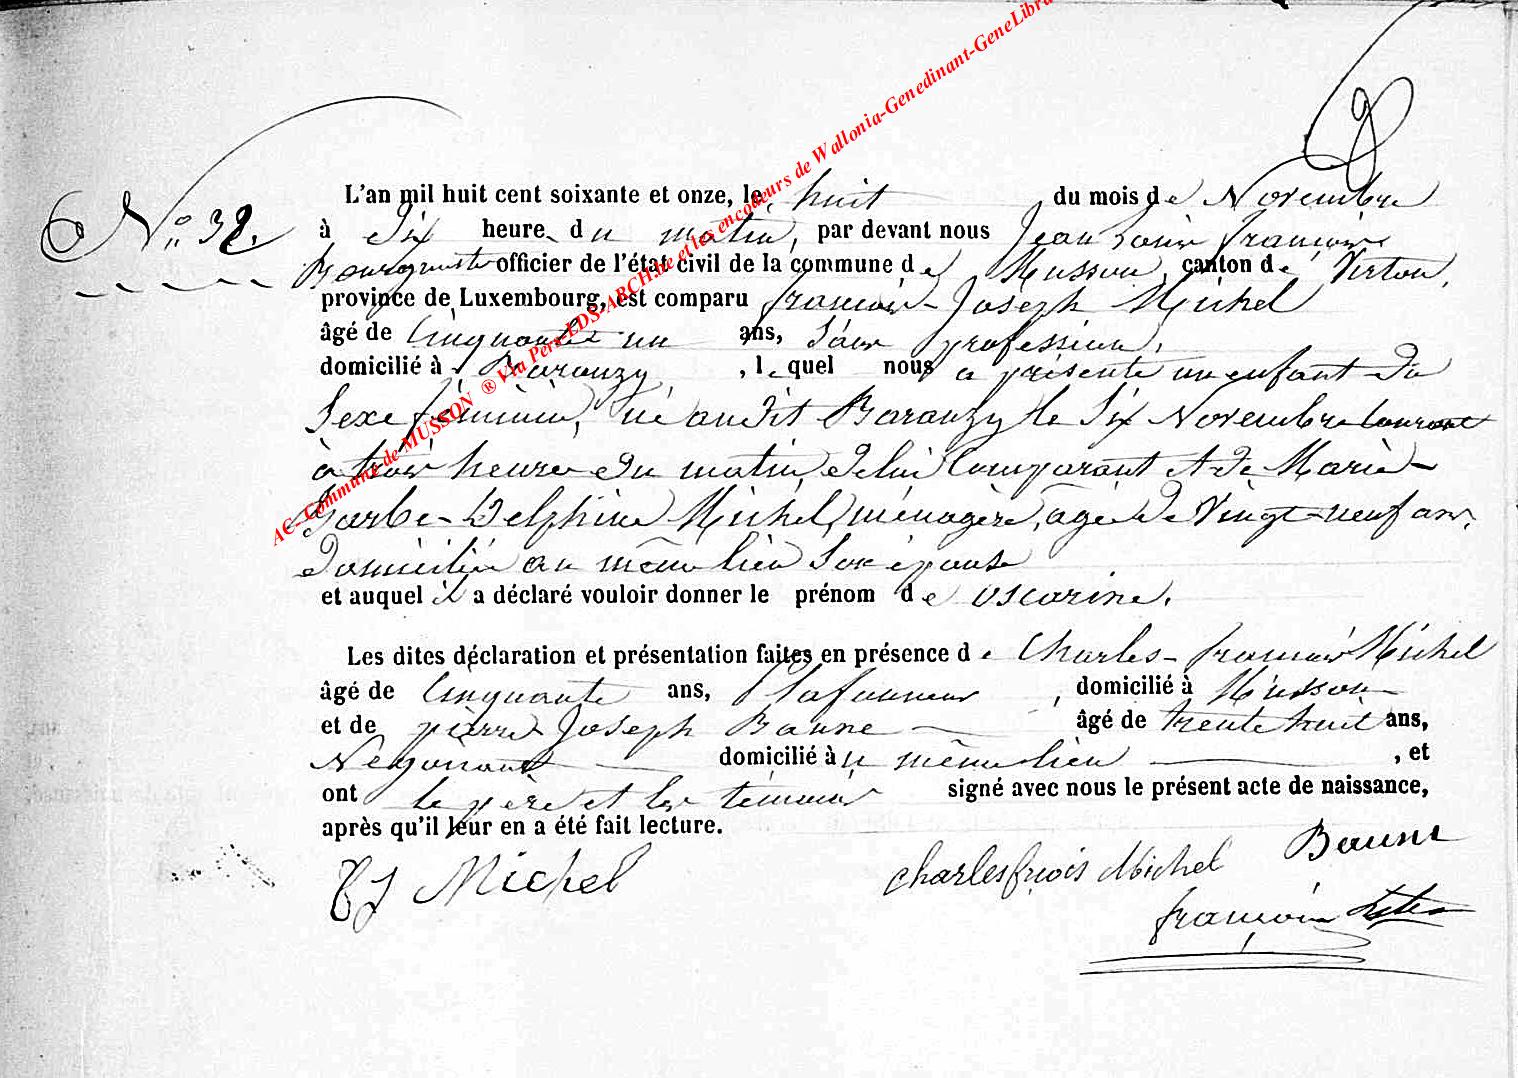 AC- Commune de MUSSON ® Via Pers-LDS-ARCH.be et les encodeurs de Wallonia-Genedinant-GeneLibra
L'an mil huit cent soixante et onze, le huit du mois de Novembre
N° 32. à dix heure du matin, par devant nous Jean Louis François
Bourgmestre officier de l'état civil de la commune de Musson, canton de Virton,
province de Luxembourg, est comparu françois-Joseph Michel
âgé de Cinquante un ans, Sans profession,
domicilié à Baranzy, lequel nous a présenté un enfant du
Sexe féminin, né au dit Baranzy le Six Novembre courant
à trois heures du matin, de lui Comparant et de Marie-
Barbe-Delphine Michel, ménagère, âgée de Vingt-neuf ans,
Domiciliée au même lieu Son épouse
et auquel il a déclaré vouloir donner le prénom de oscarine.
Les dites déclaration et présentation faites en présence de Charles-françois Michel
âgé de Cinquante ans, Plafonneur, domicilié à Musson
et de pierre-Joseph Baune âgé de trente huit ans,
Négociant domicilié au même lieu, et
ont le père et les témoins signé avec nous le présent acte de naissance,
après qu'il leur en a été fait lecture.
FJ Michel charles frçois Michel Baune
françois